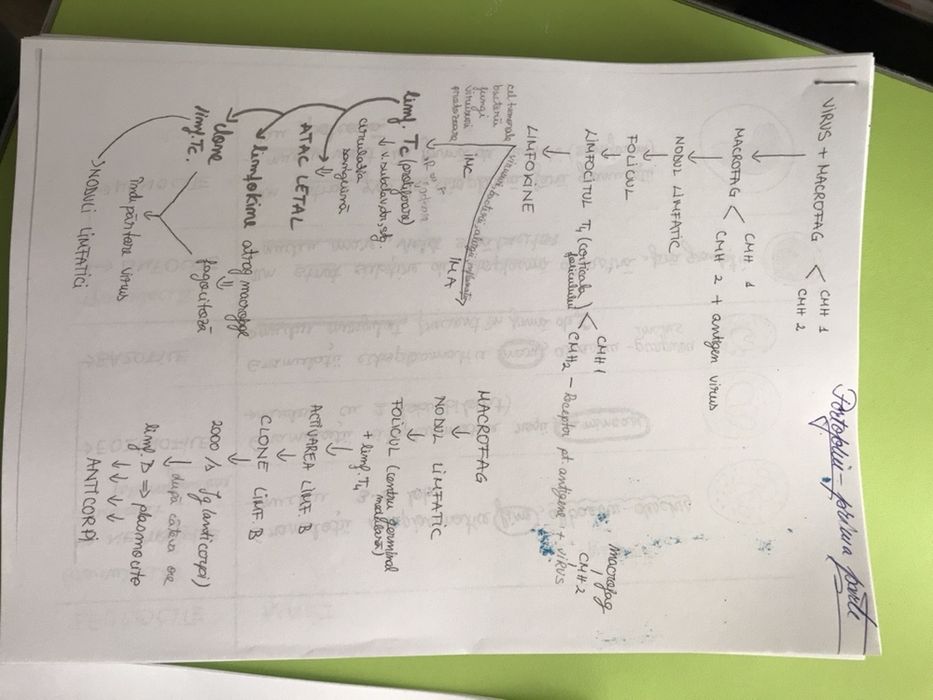 Portofoliu - prima parte
VIRUS + MACROFAG < CMH 1
CMH 2
MACROFAG < CMH 1
CMH 2 + antigen virus
NODUL LIMFATIC
FOLICUL
LIMFOCITUL T4 (corticala foliculului) < CMH1
CMH2 - Receptor pt. antigene + VIRUS
macrofag
CMH2
LIMFOKINE
cel tumorale
bacterii
fungi
virusuri
protozoare
IMC
IMA
limf. Tc (proliferare)
circulatia
sanguină
ATAC LETAL
limfokine atrag macrofage
fagocitează
clone
limf. Tc.
îndepărtare virus
NODULI LIMFATICI
MACROFAG
NODUL LIMFATIC
FOLICUL (centru germinal
medulară)
+ limf. T4
ACTIVAREA LIMF. B
CLONE LIMF. B
2000 /s Ig (anticorpi)
după câteva ore
limf. B => plasmocite
ANTICORPI